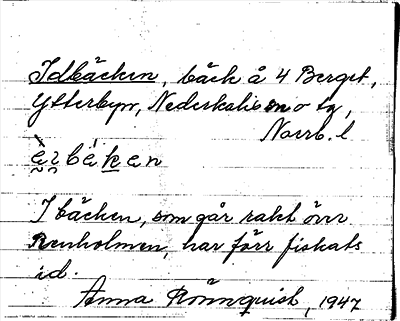 Idbäcken, bäck å 4 Berget,
Ytterbyn, Nederkalix sn o tg,
Norrb. l
I bäcken, som går rakt över
Renholmen, har förr fiskats
id.
Anna Rönnquist, 1947